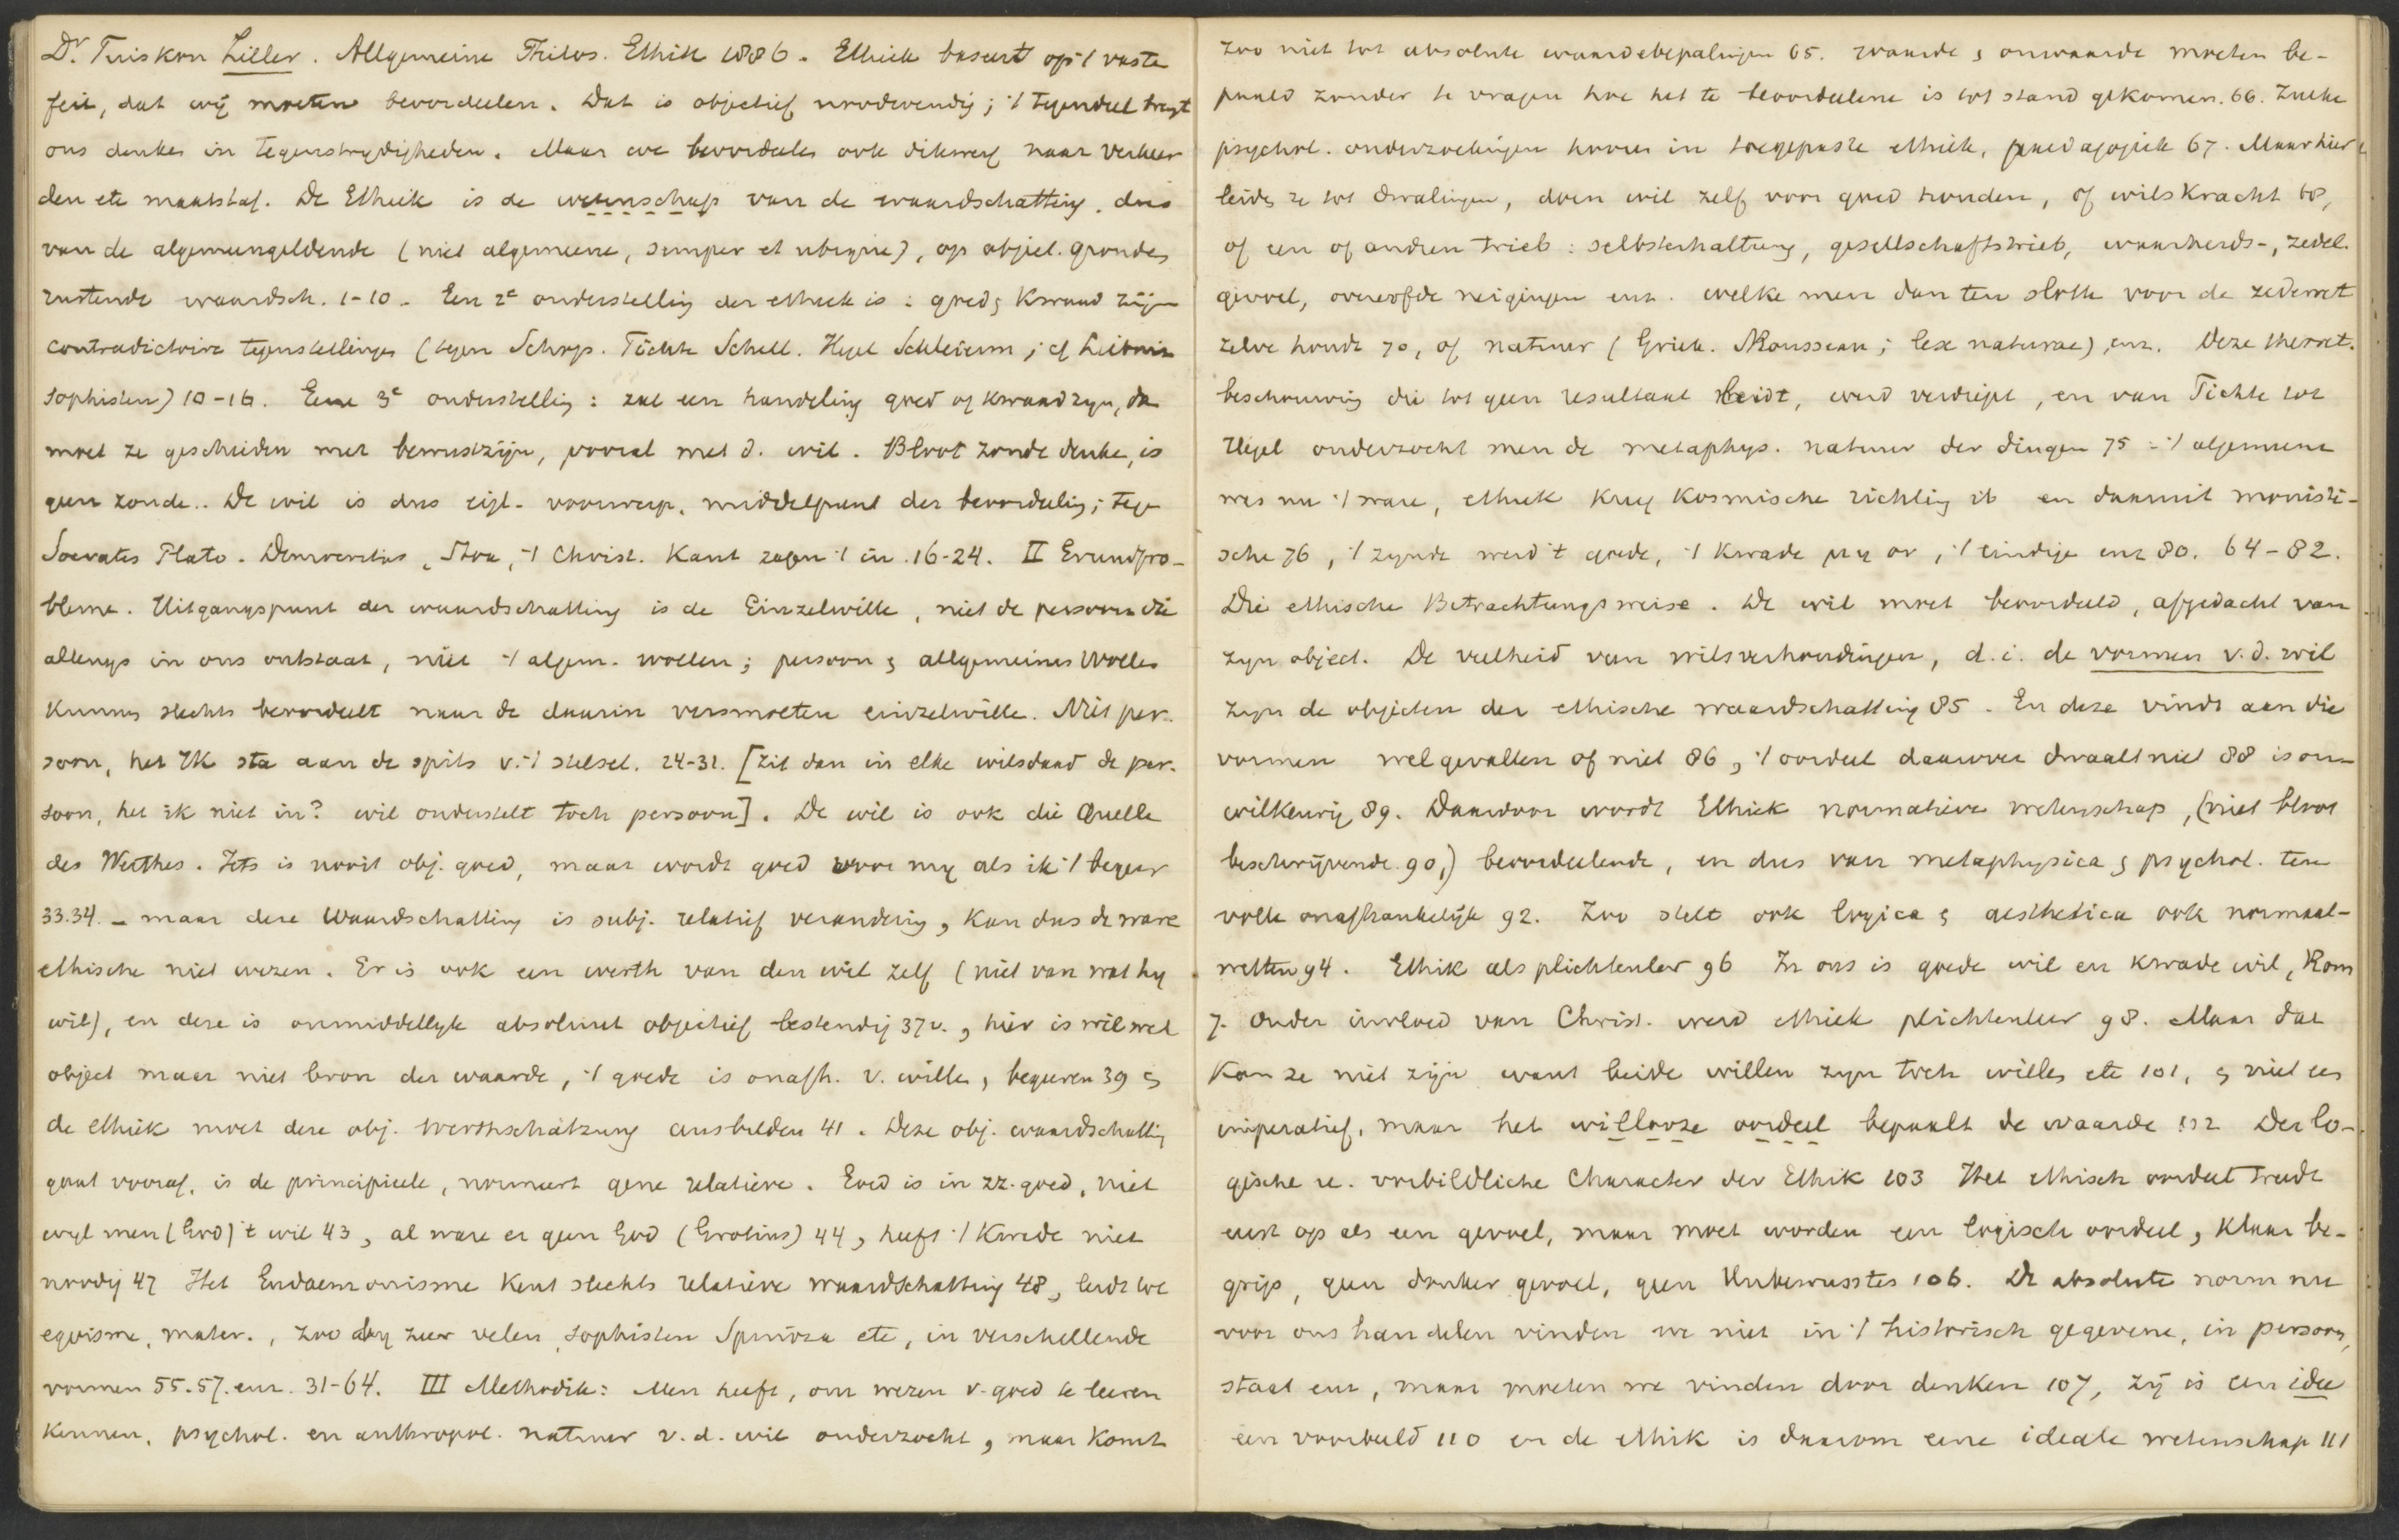 Dr. Tuiskon Ziller. Allgemeine Philos. Ethik 1886. Ethiek baseert op 't vaste
feit, dat wij moeten beoordeelen. Dat is objectief noodwendig; 't tegendeel brengt
ons denken in tegenstrijdigheden. Maar we beoordeelen ook dikwerf naar verkeer
den etc maatstaf. De Ethiek is de wetenschap van de waardschatting, dus
van de algemeengeldende (niet algemeene, semper et ubique), op objiet. gronden
rustende waardsch. 1-10. Een 2e onderstelling der ethiek is: goed & kwaad zijn
contradictoire tegenstellingen (tegen Schop. Fichte Schell. Hegel Schleierm; cf Leibnitz
sophisten) 10-16. Eene 3e onderstelling: zal een handeling goed of kwaad zijn, dan
moet ze geschieden met bewustzijn, vooral met d. wil. Bloot zonde denken, is
geen zonde.. De wil is dus eigl. voorwerp, middelpunt der beoordeeling; tegen
Socrates Plato. Democritus, Stoa, 't Christ. Kant zagen 't in. 16-24. II Grundpro-
bleme. Uitgangspunt der waardschatting is de Einzelwille, niet de persoon die
allengs in ons ontstaat, niet 't algem. wollen; persoon & allgemeines Wollen
kunnen slechts beoordeelt naar de daarin versmolten einzelwille. Niet per-
soon, het IK sta aan de spits v. 't stelsel. 24-31. [Zit dan in elke wilsdaad de per-
soon, het ik niet in? wil onderstelt toch persoon]. De wil is ook die Quelle
des Werthes. Iets is nooit obj. goed, maar wordt goed voor mij als ik 't begeer
33.34. - maar deze Waardschatting is subj. relatief verandering, kan dus de ware
ethische niet wezen. Er is ook een werth van den wil zelf (niet van wat hij
wil), en deze is onmiddellijk absoluut objectief bestendig 37v., hier is wil wel
object maar niet bron der waarde, 't goede is onafh. v. wille, begeeren 39 &
de ethiek moet deze obj. werthschätzung ausbilden 41. Deze obj. waardschatting
gaat vooraf, is de principieele, normeert gene relatieve. Goed is in zz. goed, niet
wijl men (God) 't wil 43, al ware er geen God (Grotius) 44, heeft 't Kwade niet
noodig 47 Het Eudaemonisme kent slechts relatieve waardschatting 48, leidt tot
egoisme, mater., zoo bij zeer velen, sophisten Spinoza etc, in verschillende
vormen 55.57. enz. 31-64. III Methodik: Men heeft, om wezen v. goed te leeren
kennen, psychol. en anthropol. natuur v. d. wil onderzocht, maar komt
zoo niet tot absolute waardebepalingen 65. waarde & onwaarde moeten be-
paald zonder te vragen hoe het te beoordeelene is tot stand gekomen. 66. Zulke
psychol. onderzoekingen hooren in toegepaste ethiek, paedagogiek 67. Maar hier
leiden ze tot dwalingen, doen wil zelf voor goed houden, of wilskracht 68,
of een of andren trieb: selbsterhaltung, gesellschaftstrieb, waarheids-, zedel.
gevoel, overerfde neigingen enz. welke men dan ten slotte voor de zedewet
zelve houdt 70, of natuur (Griek. Rousseau; lex naturae), enz. Deze theoret.
beschouwing die tot geen resultaat leidt, werd verdiept, en van Fichte tot
Hegel onderzocht men de metaphys. natuur der dingen 75 - 't algemeene
was nu 't ware, ethiek kreeg kosmische richting ib en daarmit monisti-
sche 76, 't zijnde werd 't goede, 't kwade μη ον, 't eindige enz 80. 64-82.
Die ethische Betrachtungsweise. De wil moet beoordeeld, afgedacht van
zijn object. De veelheid van wilsverhoudingen, d.i. de vormen v. d. wil
zijn de objecten der ethische waardschatting 85. En deze vindt aan die
vormen welgevallen of niet 86, 't oordeel daarover dwaalt niet 88 is on-
wilkeurig 89. Daardoor wordt Ethiek normatieve wetenschap, (niet bloot
beschrijvende 90,) beoordeelende, en dus van metaphysica & psychol. ten
volle onafhankelijk 92. Zoo stelt ook logica & aesthetica ook normaal-
wetten 94. Ethik als plichtenleer 96 In ons is goede wil en kwade wil, Rom
7. Onder invloed van Christ. werd ethiek plichtenleer 98. Maar dat
kan ze niet zijn want beide willen zijn toch willen etc 101, & niet een
imperatief, maar het willooze oordeel bepaalt de waarde 102 Der lo-
gische u. vorbildliche Character der Ethik 103 Het ethisch oordeel treedt
eerst op als een gevoel, maar moet worden een logisch oordeel, klaar be-
grip, geen donker gevoel, geen Unbewusstes 106. De absolute norm nu
voor ons handelen vinden we niet in 't historisch gegevene, in persoon,
staat enz, maar moeten we vinden door denken 107, zij is een idee
een voorbeeld 110 en de ethik is daarom eene ideale wetenschap 111